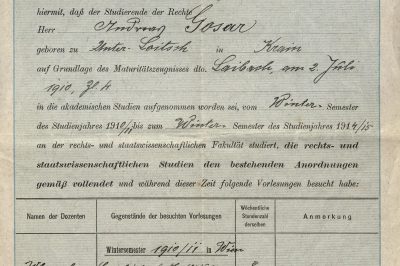 hiermit, daß der Studierende der Rechte
Herr Andreas Gosar
geboren zu Unter-Loitsch in Krain
auf Grundlage des Maturitätszeugnisses dto. Laibach, am 2. Juli
1910, Zl 4
in die akademischen Studien aufgenommen worden sei, vom Winter-Semester
des Studienjahres 1910/11 bis zum Winter-Semester des Studienjahres 1914/15
an der rechts- und staatswissenschaftlichen Fakultät studiert, die rechts- und
staatswissenschaftlichen Studien den bestehenden Anordnungen
gemäß vollendet und während dieser Zeit folgende Vorlesungen besucht habe:
Namen der Dozenten Gegenstände der besuchten Vorlesungen Wöchentliche Stundenzahl derselben Anmerkung
Wintersemester 1910/11 in Wien